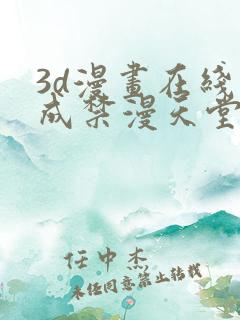 3d漫畫在綫
成禁漫天堂
任中杰
未经同意禁止转载